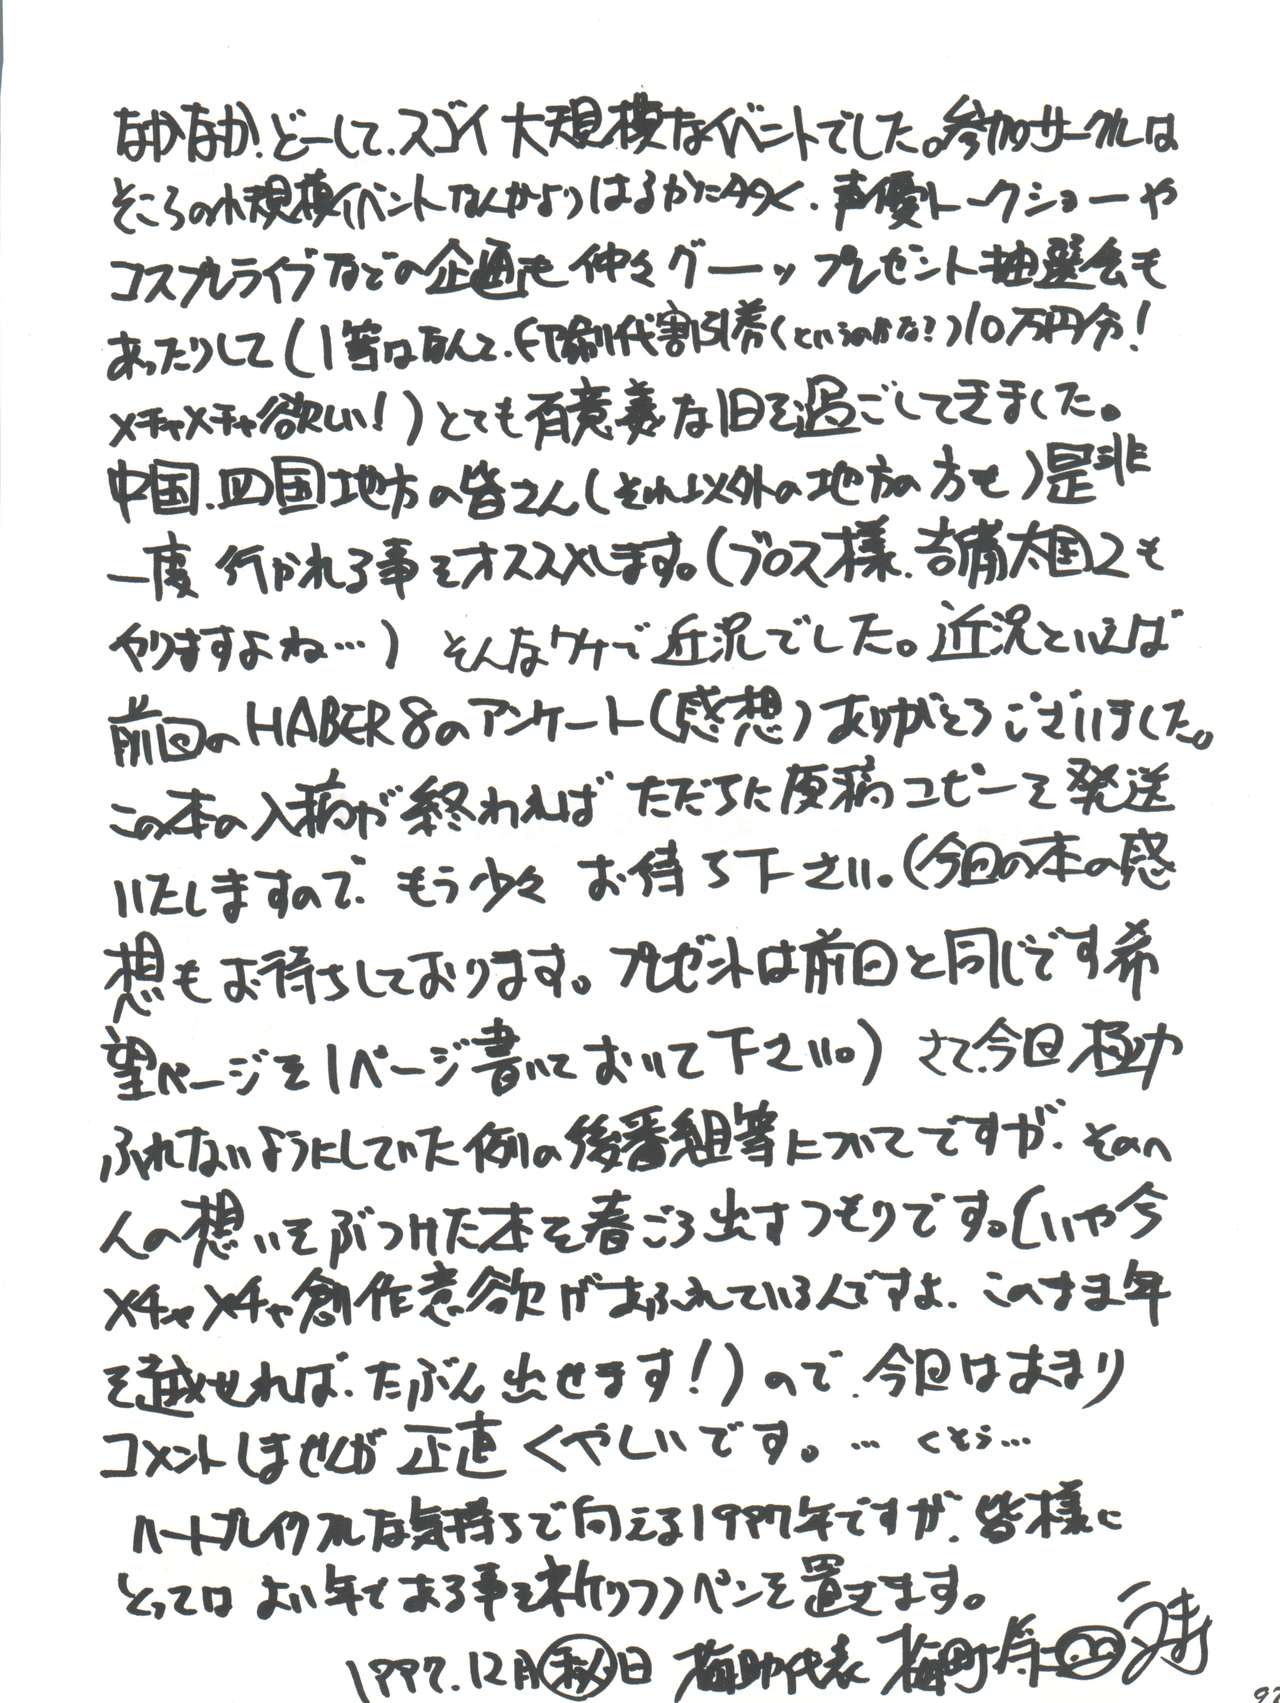 なかなか、どーして、スゴイ大規模なイベントでした。参加サークルは
そこらの小規模イベントなんかよりはるかに多く、声優トークショーや
コスプレライブなどの企画も仲々グーッ プレゼント抽選会も
あったりして(1等はなんと、印刷代割引券(というのかな?)10万円分!
メチャメチャ欲しい!)とても有意義な1日を過ごしてきました。
中国、四国地方の皆さん(それ以外の地方の方も)是非
一度 行かれる事をオススメします。(ブロス様、吉備太国2も
やりますよね…) そんなワケで近況でした。近況といえば
前回のHABER8のアンケート(感想)ありがとうございました。
この本の入稿が終わればただちに原稿コピーを発送
いたしますので、もう少々お待ち下さい。(今回の本の感
想もお待ちしております。プレゼントは前回と同じです希
望ページを1ページ書いておいて下さい。) さて、今回極力
ふれないようにしていた例の後番組等についてですが、そのへ
んの想いをぶつけた本を春ごろ出すつもりです。(いや今
メチャメチャ創作意欲があふれているんですよ、このまま年
を越せれば、たぶん出せます!)ので、今回はあまり
コメントしませんが正直くやしいです。… くそう…
ハートブレイクフルな気持ちで向える1997年ですが、皆様に
とってはよい年である事を祈りつつペンを置きます。
1997.12月㊙日 梅助代表 梅町